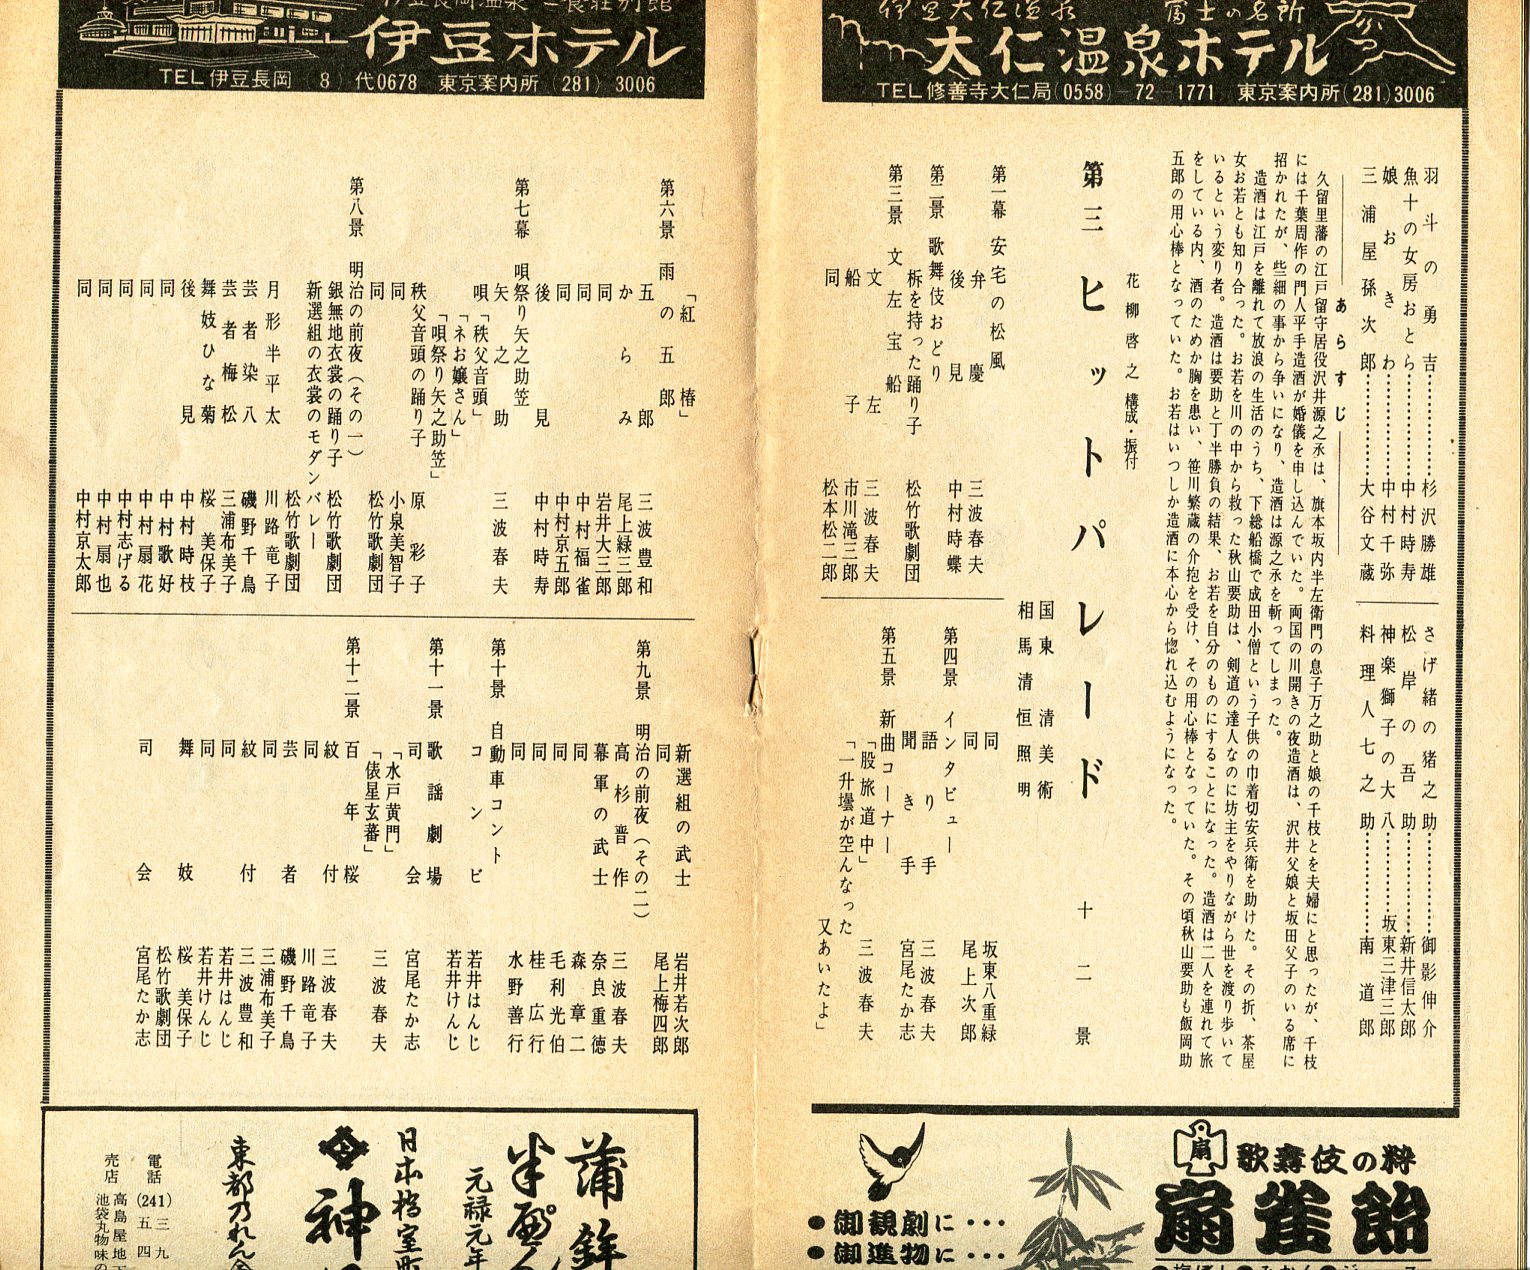 伊豆大仁温泉 富士の名所
大仁温泉ホテル
TEL修善寺大仁局(0558)-72-1771 東京案内所(281)3006
羽斗の勇吉…………杉沢勝雄
魚十の女房おとら…………中村時寿
娘おきわ…………中村千弥
三浦屋孫次郎…………大谷文蔵
さげ緒の猪之助…………御影伸介
松岸の吾助…………新井信太郎
神楽獅子の大八…………坂東三津三郎
料理人七之助…………南道郎
あらすじ
久留里藩の江戸留守居役沢井源之丞は、旗本坂内半左衛門の息子万之助と娘の千枝とを夫婦にと思ったが、千枝
には千葉周作の門人平手造酒が婚儀を申し込んでいた。両国の川開きの夜造酒は、沢井父娘と坂田父子のいる席に
招かれたが、些細の事から争いになり、造酒は源之丞を斬ってしまった。
造酒は江戸を離れて放浪の生活のうち、下総船橋で成田小僧という子供の巾着切安兵衛を助けた。その折、茶屋
女お若とも知り合った。お若を川の中から救った秋山要助は、剣道の達人なのに坊主をやりながら世を渡り歩いて
いるという変り者。造酒は要助と丁半勝負の結果、お若を自分のものにすることになった。造酒は二人を連れて旅
をしている内、酒のためか胸を患い、笹川繁蔵の介抱を受け、その用心棒となっていた。その頃秋山要助も飯岡助
五郎の用心棒となっていた。お若はいつしか造酒に本心から惚れ込むようになった。
花柳啓之構成・振付
第三 ヒットパレード 十二景
国東清美術
相馬清恒照明
第一幕 安宅の松風
弁慶 三波春夫
後見 中村時蝶
第二景 歌舞伎おどり
柝を持った踊り子 松竹歌劇団
第三景 文左宝船
文左 三波春夫
船子 市川滝三郎
同 松本松二郎
同 坂東八重緑
同 尾上次郎
第四景 インタビュー
語り手 三波春夫
聞き手 宮尾たか志
第五景 新曲コーナー
「股旅道中」 三波春夫
「一升壜が空んなった
又あいたよ」
伊豆長岡温泉 二葉荘別館
伊豆ホテル
TEL伊豆長岡(8)代0678 東京案内所(281)3006
「紅椿」
第六景 雨の五郎
五郎 三波豊和
からみ 尾上緑三郎
同 岩井大三郎
同 中村福雀
同 中村京五郎
後見 中村時寿
第七幕 唄祭り矢之助笠
矢之助 三波春夫
唄「秩父音頭」
「ネお嬢さん」
「唄祭り矢之助笠」
秩父音頭の踊り子 原彩子
同 小泉美智子
同 松竹歌劇団
第八景 明治の前夜(その一)
銀無地衣裳の踊り子 松竹歌劇団
新選組の衣裳のモダンバレー
松竹歌劇団
月形半平太 川路竜子
芸者染八 磯野千鳥
芸者梅松 三浦布美子
舞妓ひな菊 桜美保子
後見 中村時枝
同 中村歌好
同 中村扇花
同 中村志げる
同 中村扇也
同 中村京太郎
新選組の武士 岩井若次郎
同 尾上梅四郎
第九景 明治の前夜(その二)
高杉晋作 三波春夫
幕軍の武士 奈良重徳
同 森章二
同 毛利光伯
同 桂広行
同 水野善行
第十景 自動車コント
コンビ 若井はんじ
若井けんじ
第十一景 歌謡劇場
司会 宮尾たか志
「水戸黄門」
「俵星玄蕃」 三波春夫
第十二景 百年桜
紋付 三波春夫
同 川路竜子
芸者 磯野千鳥
同 三浦布美子
紋付 三波豊和
同 若井はんじ
同 若井けんじ
舞妓 桜美保子
松竹歌劇団
司会 宮尾たか志
扇
歌舞伎の粋
扇雀飴
●御観劇に・・・
●御進物に・・・
蒲鉾
半ぺん
元禄元年
日本橋室町
神
東都乃れん会
電話(241)三九
五四
売店 高島屋地下
池袋丸物味の